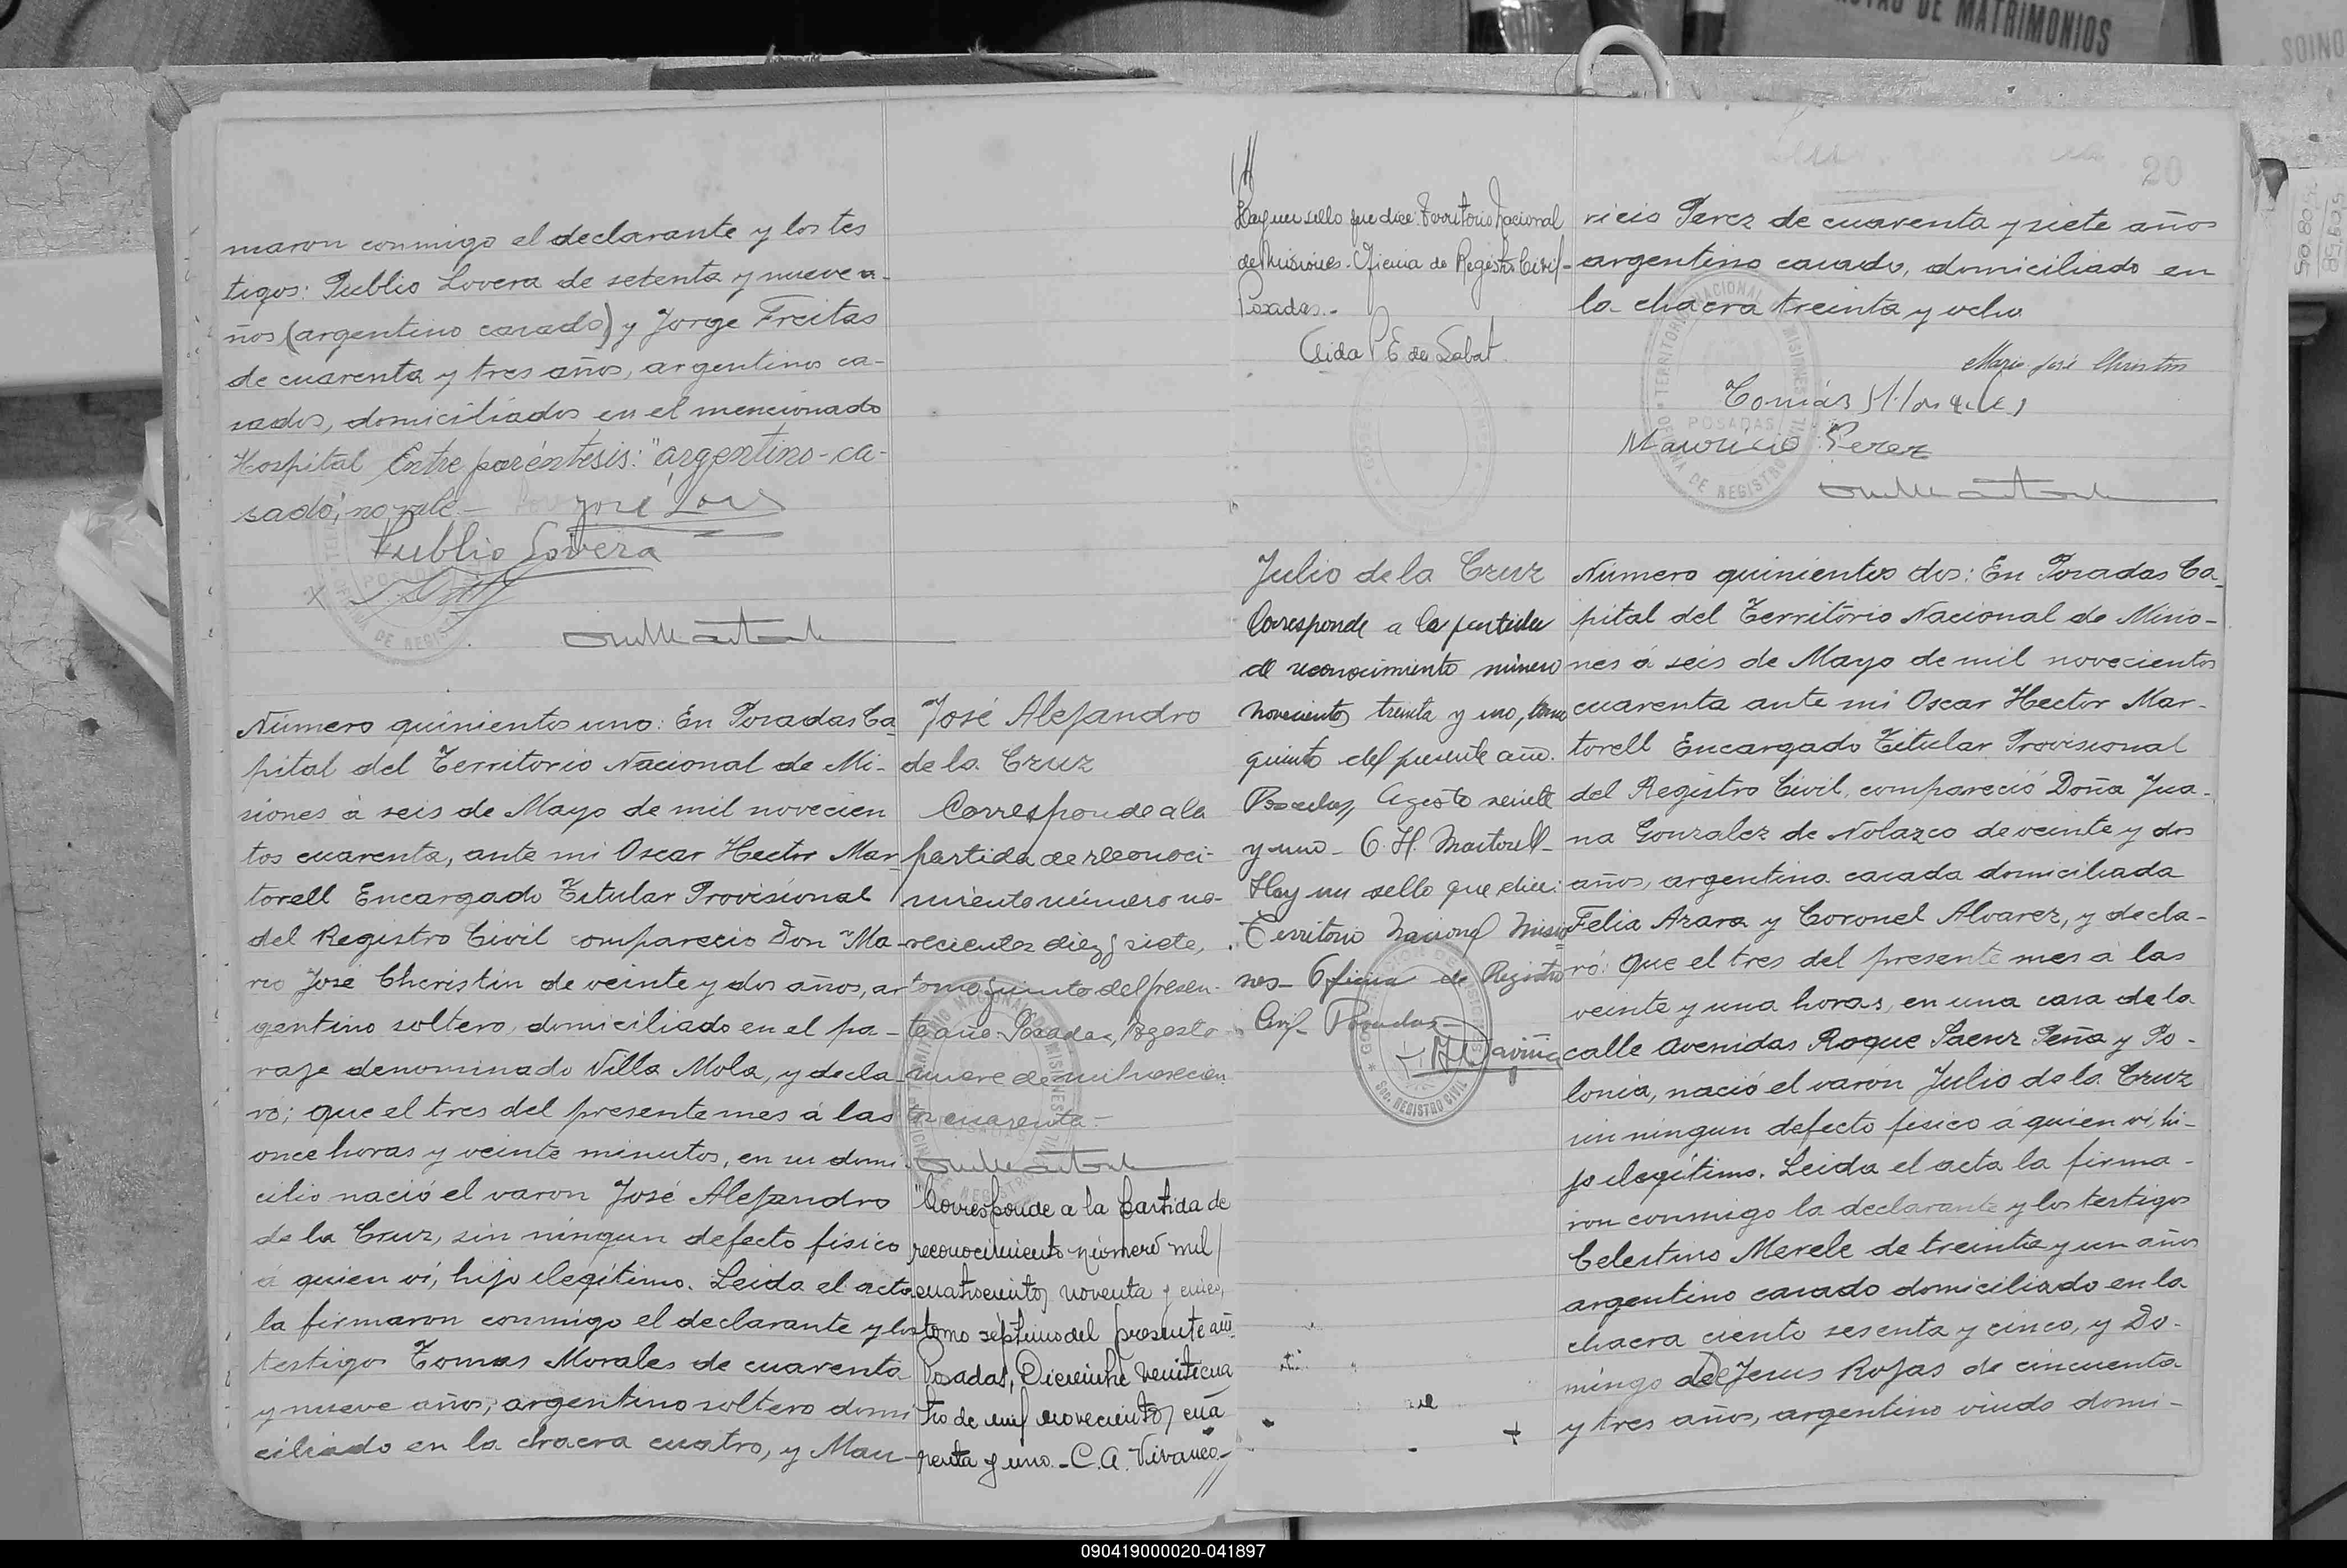 OS DE MATRIMONIOS
maron conmigo el declarante y los tes
tigos: Publio Lovera de setenta y nueve a-
ños (argentino casado) y Jorge Freitas
de cuarenta y tres años, argentinos ca-
sados, domiciliados en el mencionado
Hospital Entre paréntesis: "argentino-ca-
sado", no vale.-
Publio Lovera
Número quinientos uno: En Posadas Ca-
pital del Territorio Nacional de Mi-
siones á seis de Mayo de mil novecien
tos cuarenta, ante mi Oscar Hector Mar-
torell Encargado Titular Provisional
del Registro Civil compareció Don Ma-
rio José Christin de veinte y dos años, ar
gentino soltero, domiciliado en el pa-
raje denominado Villa Mola, y decla-
ró; que el tres del presente mes á las
once horas y veinte minutos, en su domi
cilio nació el varon José Alejandro
de la Cruz, sin ningun defecto fisico
á quien ví, hijo ilegítimo. Leida el acta
la firmaron conmigo el declarante y los
testigos Tomas Morales de cuarenta
y nueve años, argentino soltero domi
ciliado en la chacra cuatro, y Mau-
José Alejandro
de la Cruz
Corresponde a la
partida de reconoci-
miento número no-
vecientos diez y siete,
tomo quinto del presen-
te año. Posadas, Agosto
nueve de mil novecien
tos cuarenta.-
"Corresponde a la partida de
reconocimiento número mil
cuatrocientos noventa y cinco,
tomo séptimo del presente año.
Posadas, Diciembre veinticua
tro de mil novecientos cua
renta y uno.- C.A. Vivanco-
//
//
Hay un sello que dice: Territorio Nacional
de Misiones- Oficina de Registro Civil-
Posadas.-
E de Sabat.
Julio de la Cruz
Corresponde a la partida
de reconocimiento número
novecientos treinta y uno, tomo
quinto del presente año.
Posadas, Agosto veinte
y uno- O. H. Martorell-
Hay un sello que dice:
Territorio Nacional Misio
nes- Oficina de Registro
Civil- Posadas-
20
ricio Perez de cuarenta y siete años
argentino casado, domiciliado en
la chacra treinta y ocho.
Mario José Christin
Tomás Morales
Mauricio Perez
TERRITORIO NACIONAL MISIONES
POSADAS
OFICINA DE REGISTRO CIVIL
Número quinientos dos: En Posadas Ca-
pital del Territorio Nacional de Misio-
nes á seis de Mayo de mil novecientos
cuarenta ante mi Oscar Hector Mar-
torell Encargado Titular Provisional
del Registro Civil, compareció Doña Jua-
na Gonzalez de Nolazco de veinte y dos
años, argentina casada domiciliada
Felix Azara y Coronel Alvarez, y decla-
ró: Que el tres del presente mes á las
veinte y una horas, en una casa de la
calle Avenidas Roque Saenz Peña y Po-
lonia, nació el varón Julio de la Cruz
sin ningun defecto fisico á quien ví, hi-
jo ilegítimo. Leida el acta la firma-
ron conmigo la declarante y los testigos
Celestino Merele de treinta y un años
argentino casado domiciliado en la
chacra ciento sesenta y cinco, y Do-
mingo De Jesus Rojas de cincuenta
y tres años, argentino viudo domi-
SEC. REGISTRO CIVIL
090419000020-041897